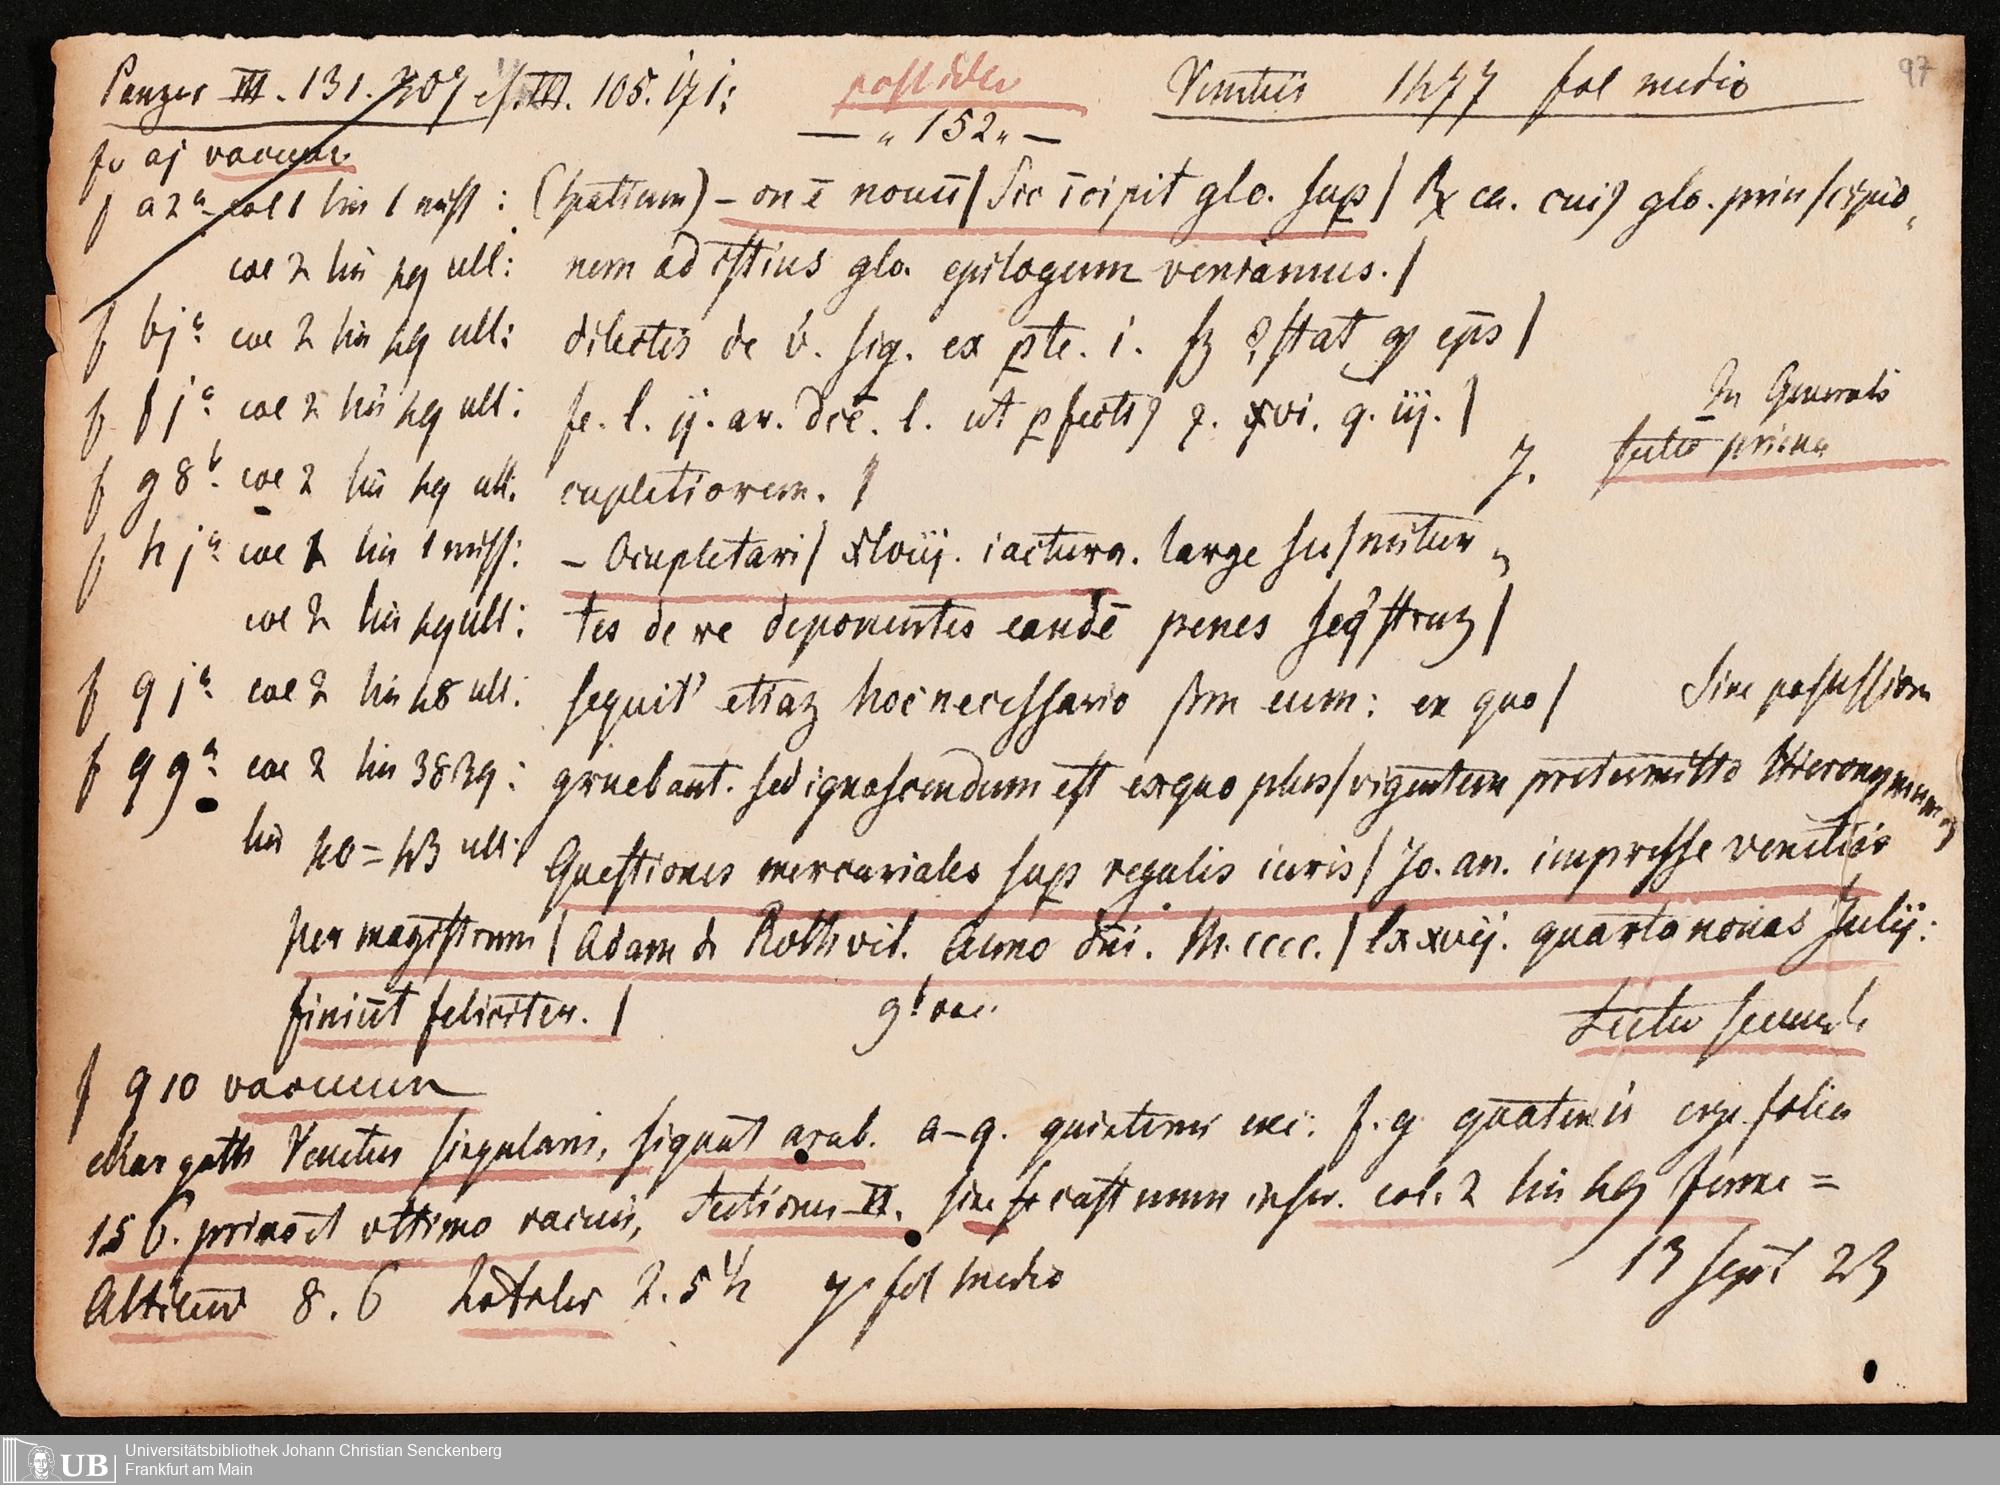 Panzer III. 131. 207 cf. III. 105. 171: Venetiis 1477 fol medio 97
— „ 152 „ —
fo aj vacuum
f a2a col 1 lin 1 miss: (spatium) – on ē nouū / Sic īcipit glo. sup / Rx ca. cui9 glo. prin / cipio
col 2 lin 49 ult: nem ad istius glo. epilogum veniamus. /
f bja col 2 lin 49 ult: dilectis de v. sig. ex pte. i. stat eps /
f fja col 2 lin 49 ult: se. l. ij. ar. l. ut pfecti9 xvi. q. iij. /
f g8b col 2 lin 49 ult. cupletiorem. / 7.
In Generali
sectio prima
f hja col 1 lin 1 miss: – Ocupletari / xlviij. iactura. large su / mitur
col 2 lin 49 ult: tes de re deponentes eandē penes seq̄straz /
f qja col 2 lin 48 ult: sequit' etiaz hoc necessario eum: ex quo / Sine possessione
f q9a col 2 lin 38 39: gruebant. sed ignoscendum est exquo plus / vigentem pretermitto Hieronymum
lin 40 = 43 ult: Questiones mercuriales sup regulis iuris / Jo. an. impresse venetiis
per magistrum / Adam de Rothvil. Anno dni. M.cccc. / lxxvij. quarto nonas Julij:
finiūt feliciter. / 9b vac. Sectio secunda
f q10 vacuum
Char goth Venetus singularis, signat arab. a–q. quinterni exc: f. g quaternis ergo folia
156. primo et ultimo vacuis, Sectiones II. sine cust num inser. col. 2 lin 49 ferme =
Altitud 8. 6 Lat 2. 5 1/2 fol medio 13 Sept 23
Universitätsbibliothek Johann Christian Senckenberg
UB Frankfurt am Main